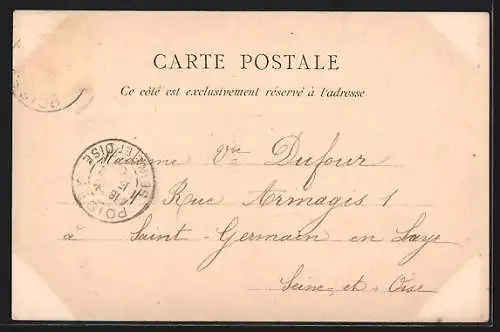 CARTE POSTALE
Ce côté est exclusivement réservé à l'adresse
Madame Vve Dufour
11 Rue Armagis 1
à Saint-Germain en Laye
Seine-et-Oise
POISSY
SEINE ET OISE
POIS